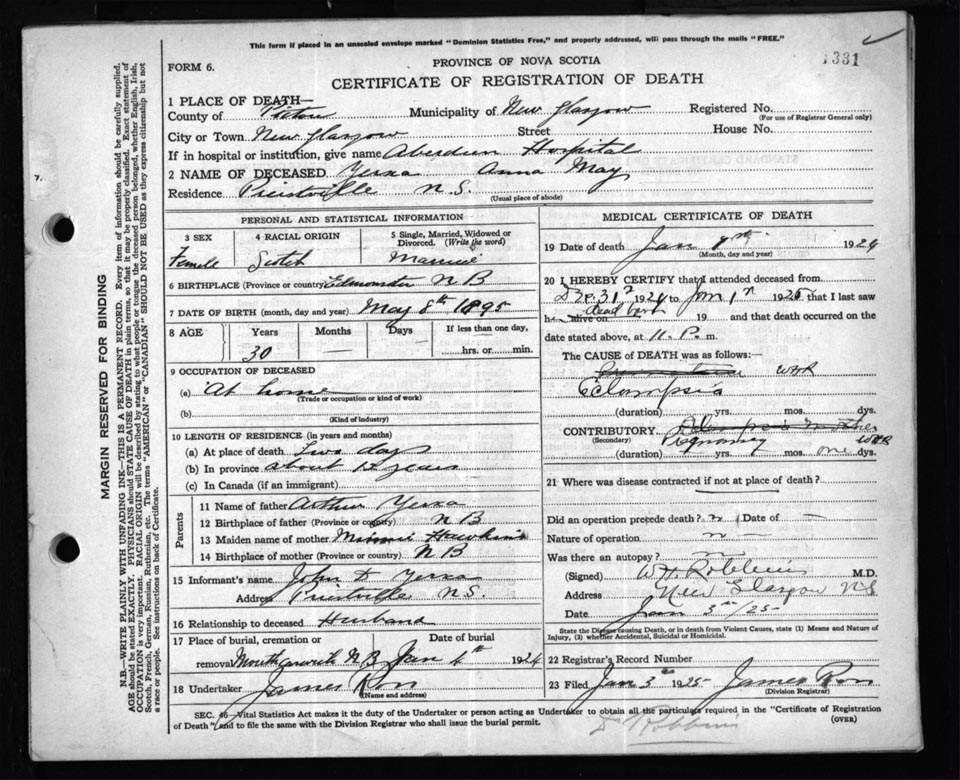 This form if placed in an unsealed envelope marked "Dominion Statistics Free," and properly addressed, will pass through the mails "FREE."
1331
FORM 6.
PROVINCE OF NOVA SCOTIA
CERTIFICATE OF REGISTRATION OF DEATH
1 PLACE OF DEATH—
County of Pictou Municipality of New Glasgow Registered No.
(For use of Registrar General only)
City or Town New Glasgow Street House No.
If in hospital or institution, give name Aberdeen Hospital
2 NAME OF DECEASED Yerxa Anna May
Residence Priestville N.S.
(Usual place of abode)
PERSONAL AND STATISTICAL INFORMATION
3 SEX 4 RACIAL ORIGIN 5 Single, Married, Widowed or Divorced. (Write the word)
Female Scotch Married
6 BIRTHPLACE (Province or country) Edmunston N B
7 DATE OF BIRTH (month, day and year) May 8th 1895
8 AGE Years Months Days If less than one day,
30 — — hrs. or min.
9 OCCUPATION OF DECEASED
(a) At home
(Trade or occupation or kind of work)
(b)
(Kind of industry)
10 LENGTH OF RESIDENCE (in years and months)
(a) At place of death Two days
(b) In province about 12 years
(c) In Canada (if an immigrant)
Parents
11 Name of father Arthur Yerxa
12 Birthplace of father (Province or country) N B
13 Maiden name of mother Minnie Hawkins
14 Birthplace of mother (Province or country) N B
15 Informant's name John D Yerxa
Address Priestville N.S.
16 Relationship to deceased Husband
17 Place of burial, cremation or Date of burial
removal N B Jan 4th 1924
18 Undertaker James Ross
(Name and address)
MEDICAL CERTIFICATE OF DEATH
19 Date of death Jan 1924
(Month, day and year)
20 I HEREBY CERTIFY that I attended deceased from
Dec 31st 1924 to Jan 1st 1925 that I last saw
h alive on dead 19 and that death occurred on the
date stated above, at 11. P. m.
The CAUSE of DEATH was as follows:
WHR
Eclampsia
(duration) yrs. mos. dys.
CONTRIBUTORY Eclampsia Mother
(Secondary) Pregnancy WHR
(duration) yrs. mos. one dys.
21 Where was disease contracted if not at place of death?
Did an operation precede death? n Date of —
Nature of operation n —
Was there an autopsy? n
(Signed) W.H. Robbins M.D.
Address New Glasgow N.S
Date Jan 3rd/25
State the Disease causing Death, or in death from Violent Causes, state (1) Means and Nature of Injury, (2) whether Accidental, Suicidal or Homicidal.
22 Registrar's Record Number
23 Filed Jan 3rd 1925 James Ross
(Division Registrar)
SEC. 46—Vital Statistics Act makes it the duty of the Undertaker or person acting as Undertaker to obtain all the particulars required in the "Certificate of Registration
of Death" and to file the same with the Division Registrar who shall issue the burial permit.
(OVER)
Dr Robbins
MARGIN RESERVED FOR BINDING
N.B.—WRITE PLAINLY WITH UNFADING INK—THIS IS A PERMANENT RECORD. Every item of information should be carefully supplied.
AGE should be stated EXACTLY. PHYSICIANS should STATE CAUSE OF DEATH in plain terms, so that it may be properly classified. Exact statement of
OCCUPATION is very important. RACIAL ORIGIN will be described by stating to what people or tongue the deceased person belonged, whether English, Irish,
Scotch, French, German, Russian, Ruthenian, etc. The terms "AMERICAN" or "CANADIAN" SHOULD NOT BE USED as they express citizenship but not
a race or people. See instructions on back of Certificate.